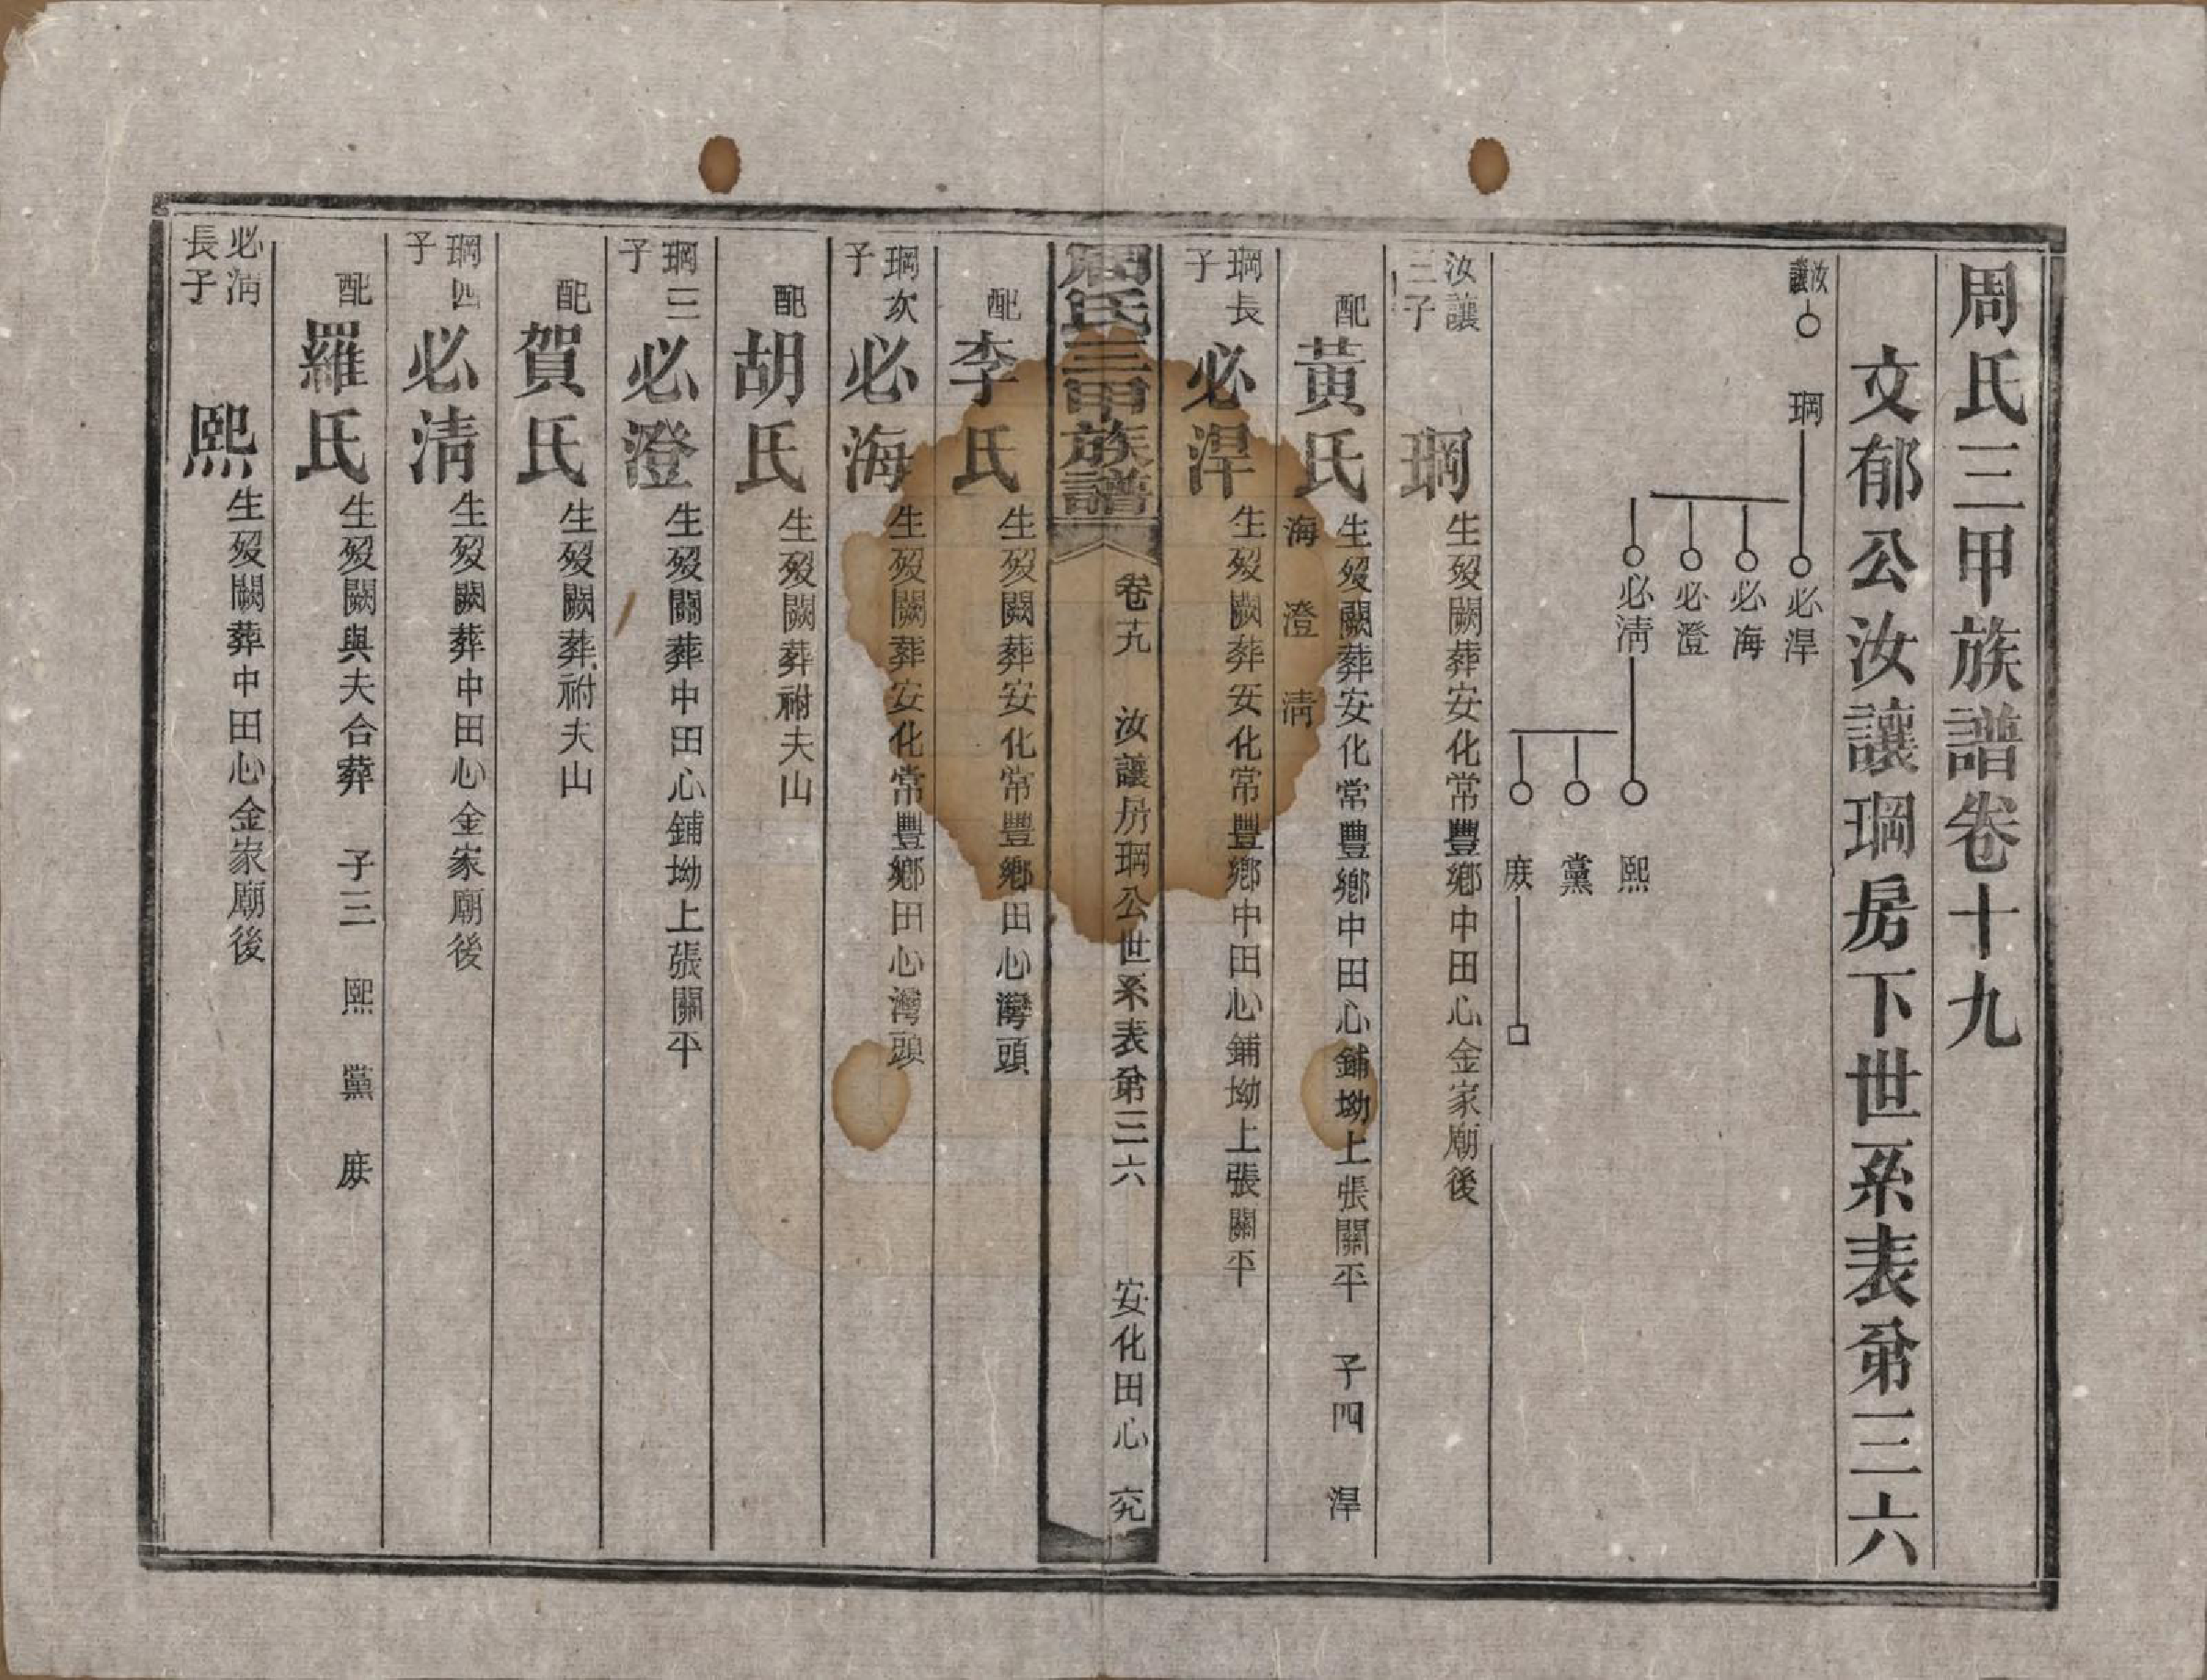 周氏三甲族譜卷十九
文郁公汝讓琱房下世系表第三六
汝讓 琱
必淂
必海
必澄
必淸
熙
黨
庻
汝讓三子 琱 生歿闕葬安化常豐鄉中田心金家廟後
配黃氏 生歿闕葬安化常豐鄉中田心鋪坳上張關平 子四 淂
海 澄 淸
琱長子 必淂 生歿闕葬安化常豐鄉中田心鋪坳上張關平
周氏三甲族譜 卷十九 汝讓房琱公世系表第三六 安化田心 究
配李氏 生歿闕葬安化常豐鄉田心灣頭
琱次子 必海 生歿闕葬安化常豐鄉田心灣頭
配胡氏 生歿闕葬祔夫山
琱三子 必澄 生歿闕葬中田心鋪坳上張關平
配賀氏 生歿闕葬祔夫山
琱四子 必淸 生歿闕葬中田心金家廟後
配羅氏 生歿闕與夫合葬 子三 熙 黨 庻
必淸長子 熙 生歿闕葬中田心金家廟後